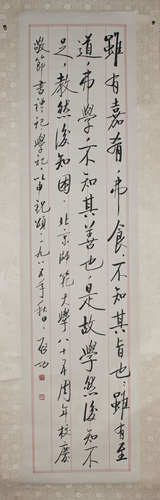 雖有嘉肴弗食不知其旨也雖有至
道弗學不知其善也是故學然後知不
足教然後知困北京師範大學八十五周年校慶
敬節書禮記學記以申祝頌一九 年秋日啟功